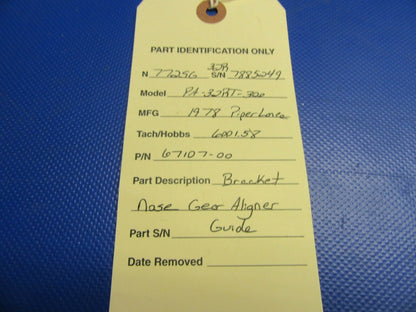 PART IDENTIFICATION ONLY
N 7725G S/N 32R 7885249
Model PA-32RT-300
MFG 1978 Piper Lance
Tach/Hobbs 6001.58
P/N 67107-00
Part Description Bracket
Nose Gear Aligner
Part S/N Guide
Date Removed